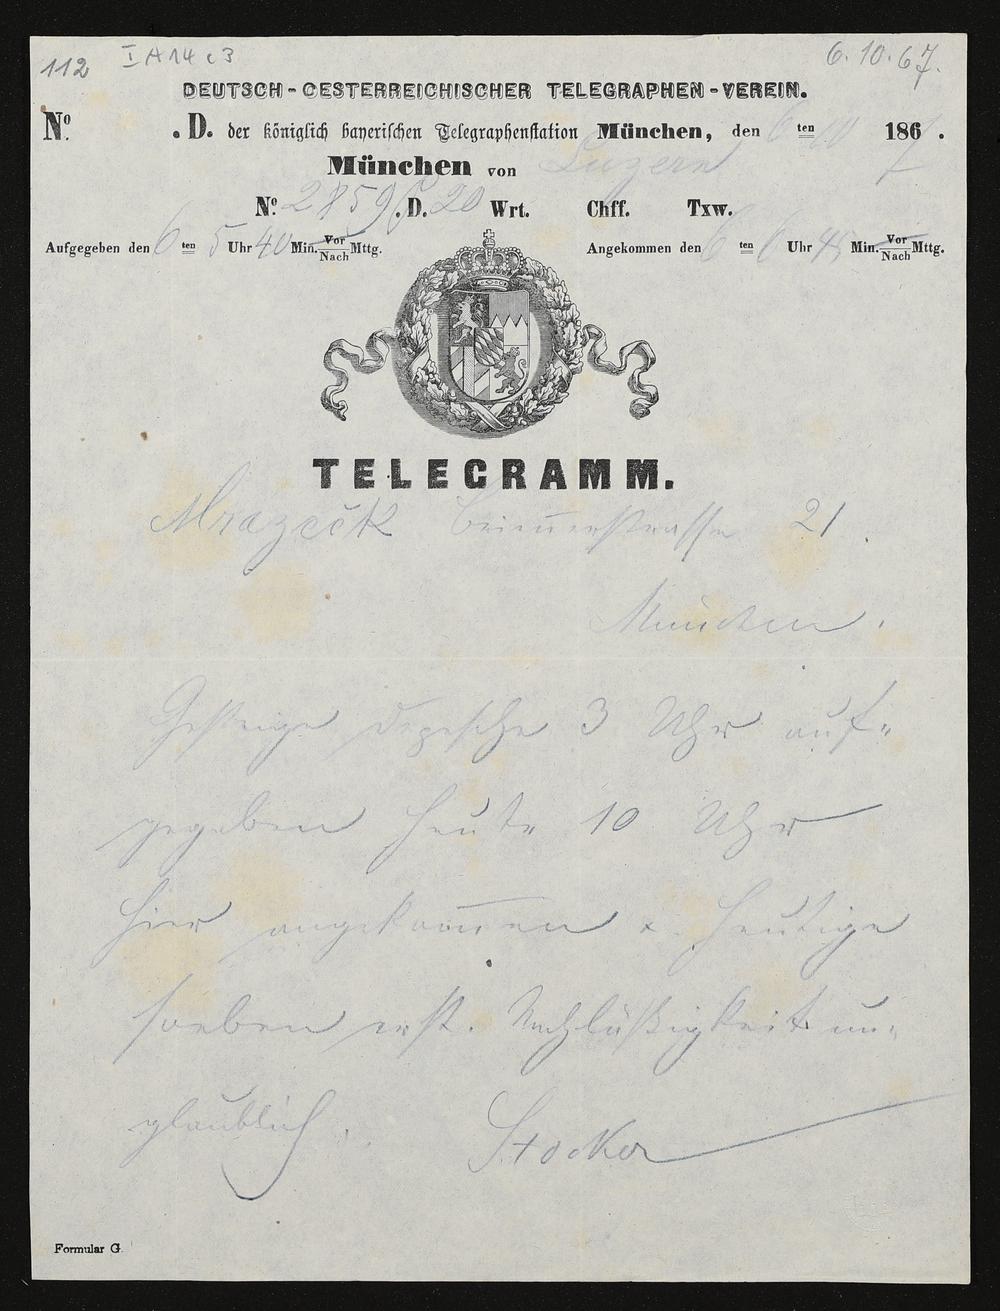 112 I A 14 c 3 6.10.67.
DEUTSCH-OESTERREICHISCHER TELEGRAPHEN-VEREIN.
No. . D. der königlich bayerischen Telegraphenstation München, den 6 ten 10 1867.
München von Luzern
No. 2859 . D. 20 Wrt. Chff. Txw.
Aufgegeben den 6 ten 5 Uhr 40 Min. Vor/Nach Mttg. Angekommen den 6 ten 6 Uhr 45 Min. Vor/Nach Mttg.
TELEGRAMM.
Mrazeck Briennerstrasse 21.
München.
Gestrige Depesche 3 Uhr auf-
gegeben heute 10 Uhr
hier angekommen u. heutige
soeben erst. Nachläßigkeit un-
glaublich.
Stocker
Formular G.